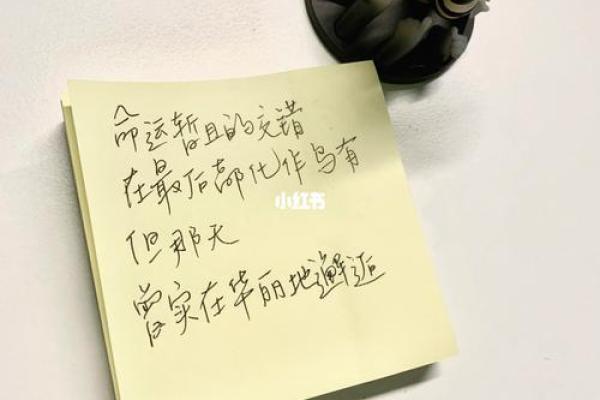 命运暂且的交错
在最后都化作乌有
小红书
但那天
曾实在华丽地邂逅